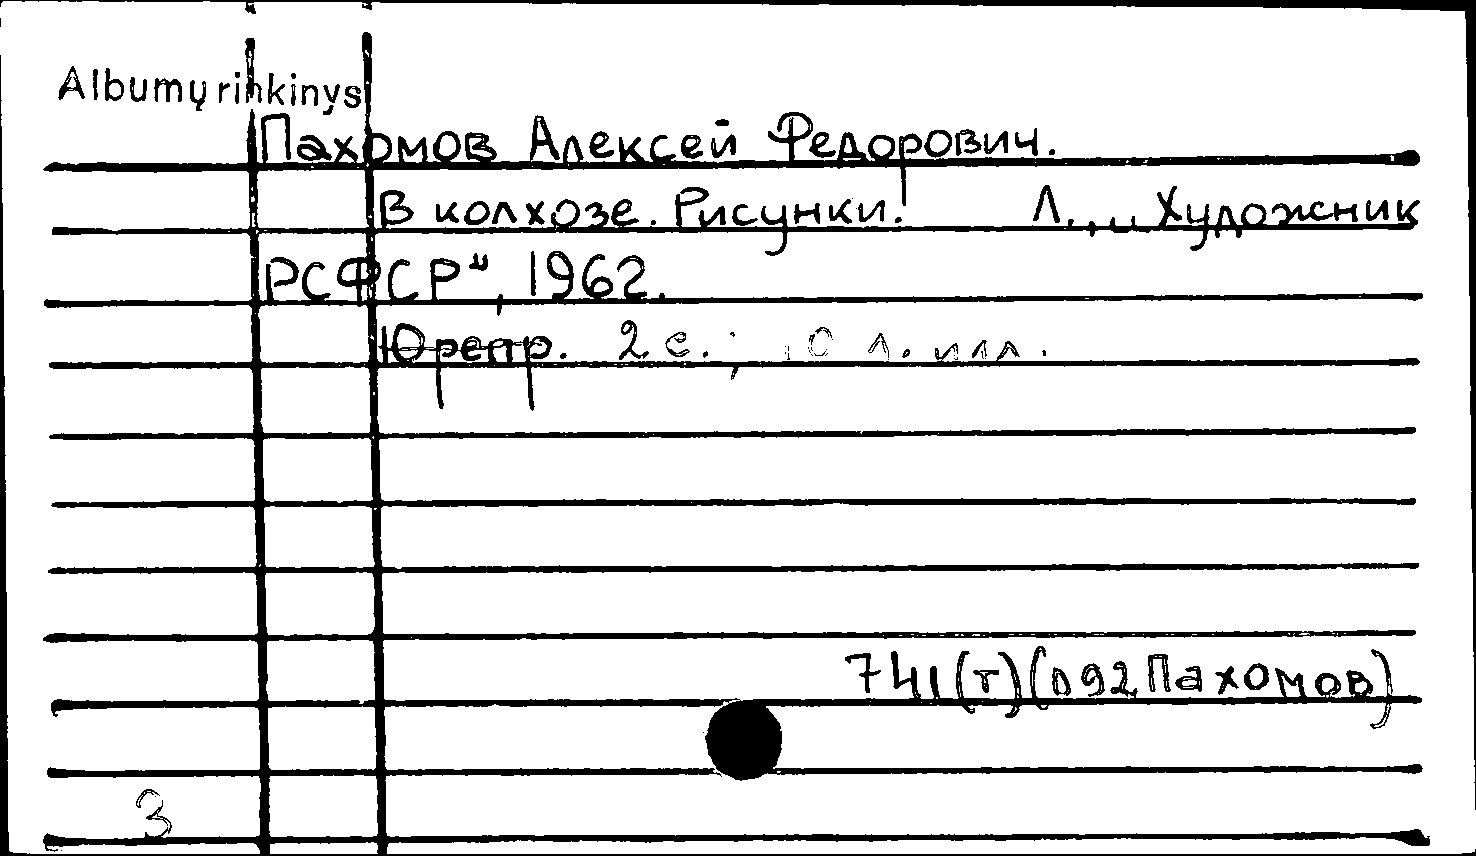 Albumų rinkinys
Пахомов Алексей Федорович.
В колхозе. Рисунки. Л., „Художник
РСФСР", 1962.
10 репр. 2 с.; 10 л. илл.
741(т)(092Пахомов)
3